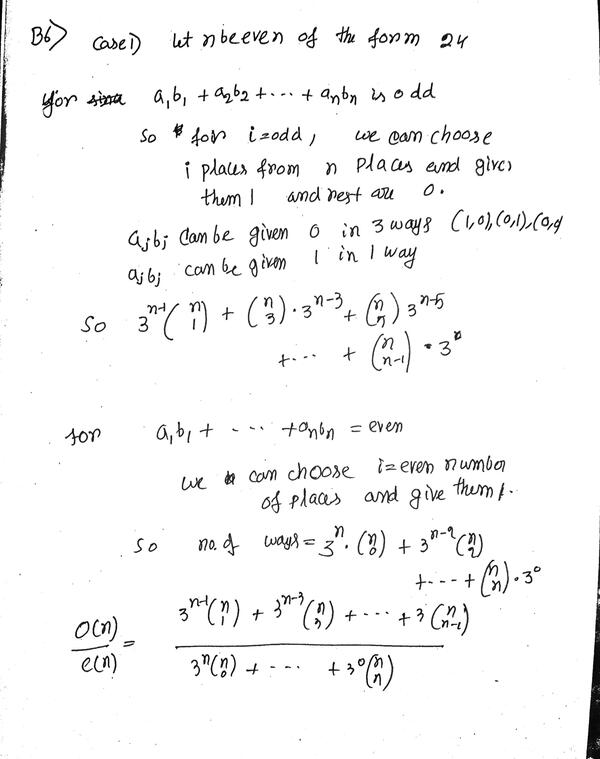 B6) Case i) let n be even of the form 24
for a₁b₁ + a₂b₂ + ... + aₙbₙ is odd
So for i=odd, we can choose
i places from n places and give
them 1 and rest are 0.
aⱼbⱼ can be given 0 in 3 ways (1,0),(0,1),(0,0
aⱼbⱼ can be given 1 in 1 way
So 3ⁿ⁻¹(n 1) + (n 3)·3ⁿ⁻³ + (n 5) 3ⁿ⁻⁵
+... + (n n-1) · 3
for a₁b₁ + --- + aₙbₙ = even
we can choose i=even number
of places and give them 1.
So no. of ways = 3ⁿ·(n 0) + 3ⁿ⁻²(n 2)
+--- + (n n)·3⁰
O(n)/e(n) = 3ⁿ⁻¹(n 1) + 3ⁿ⁻³(n 3) + ... + 3(n n-1) / 3ⁿ(n 0) + --- + 3⁰(n n)